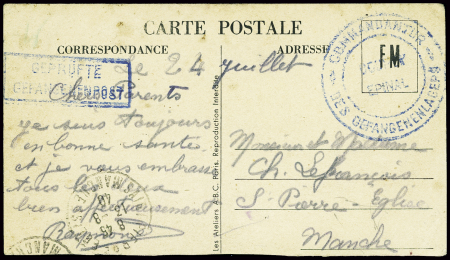 CARTE POSTALE
CORRESPONDANCE
ADRESSE
GEPRÜFTE
GEFANGENENPOST
COMMANDANTUR
DES GEFANGENENLAGERS
EPINAL
FM
Le 24 juillet
Chers Parents
je suis toujours
en bonne santé
et je vous embrasse
tous les deux
bien affectueusement
Raymond
Monsieur et Madame
Ch. Lefrançois
St Pierre-Eglise
Manche
Les Ateliers A.B.C. Paris. Reproduction Interdite